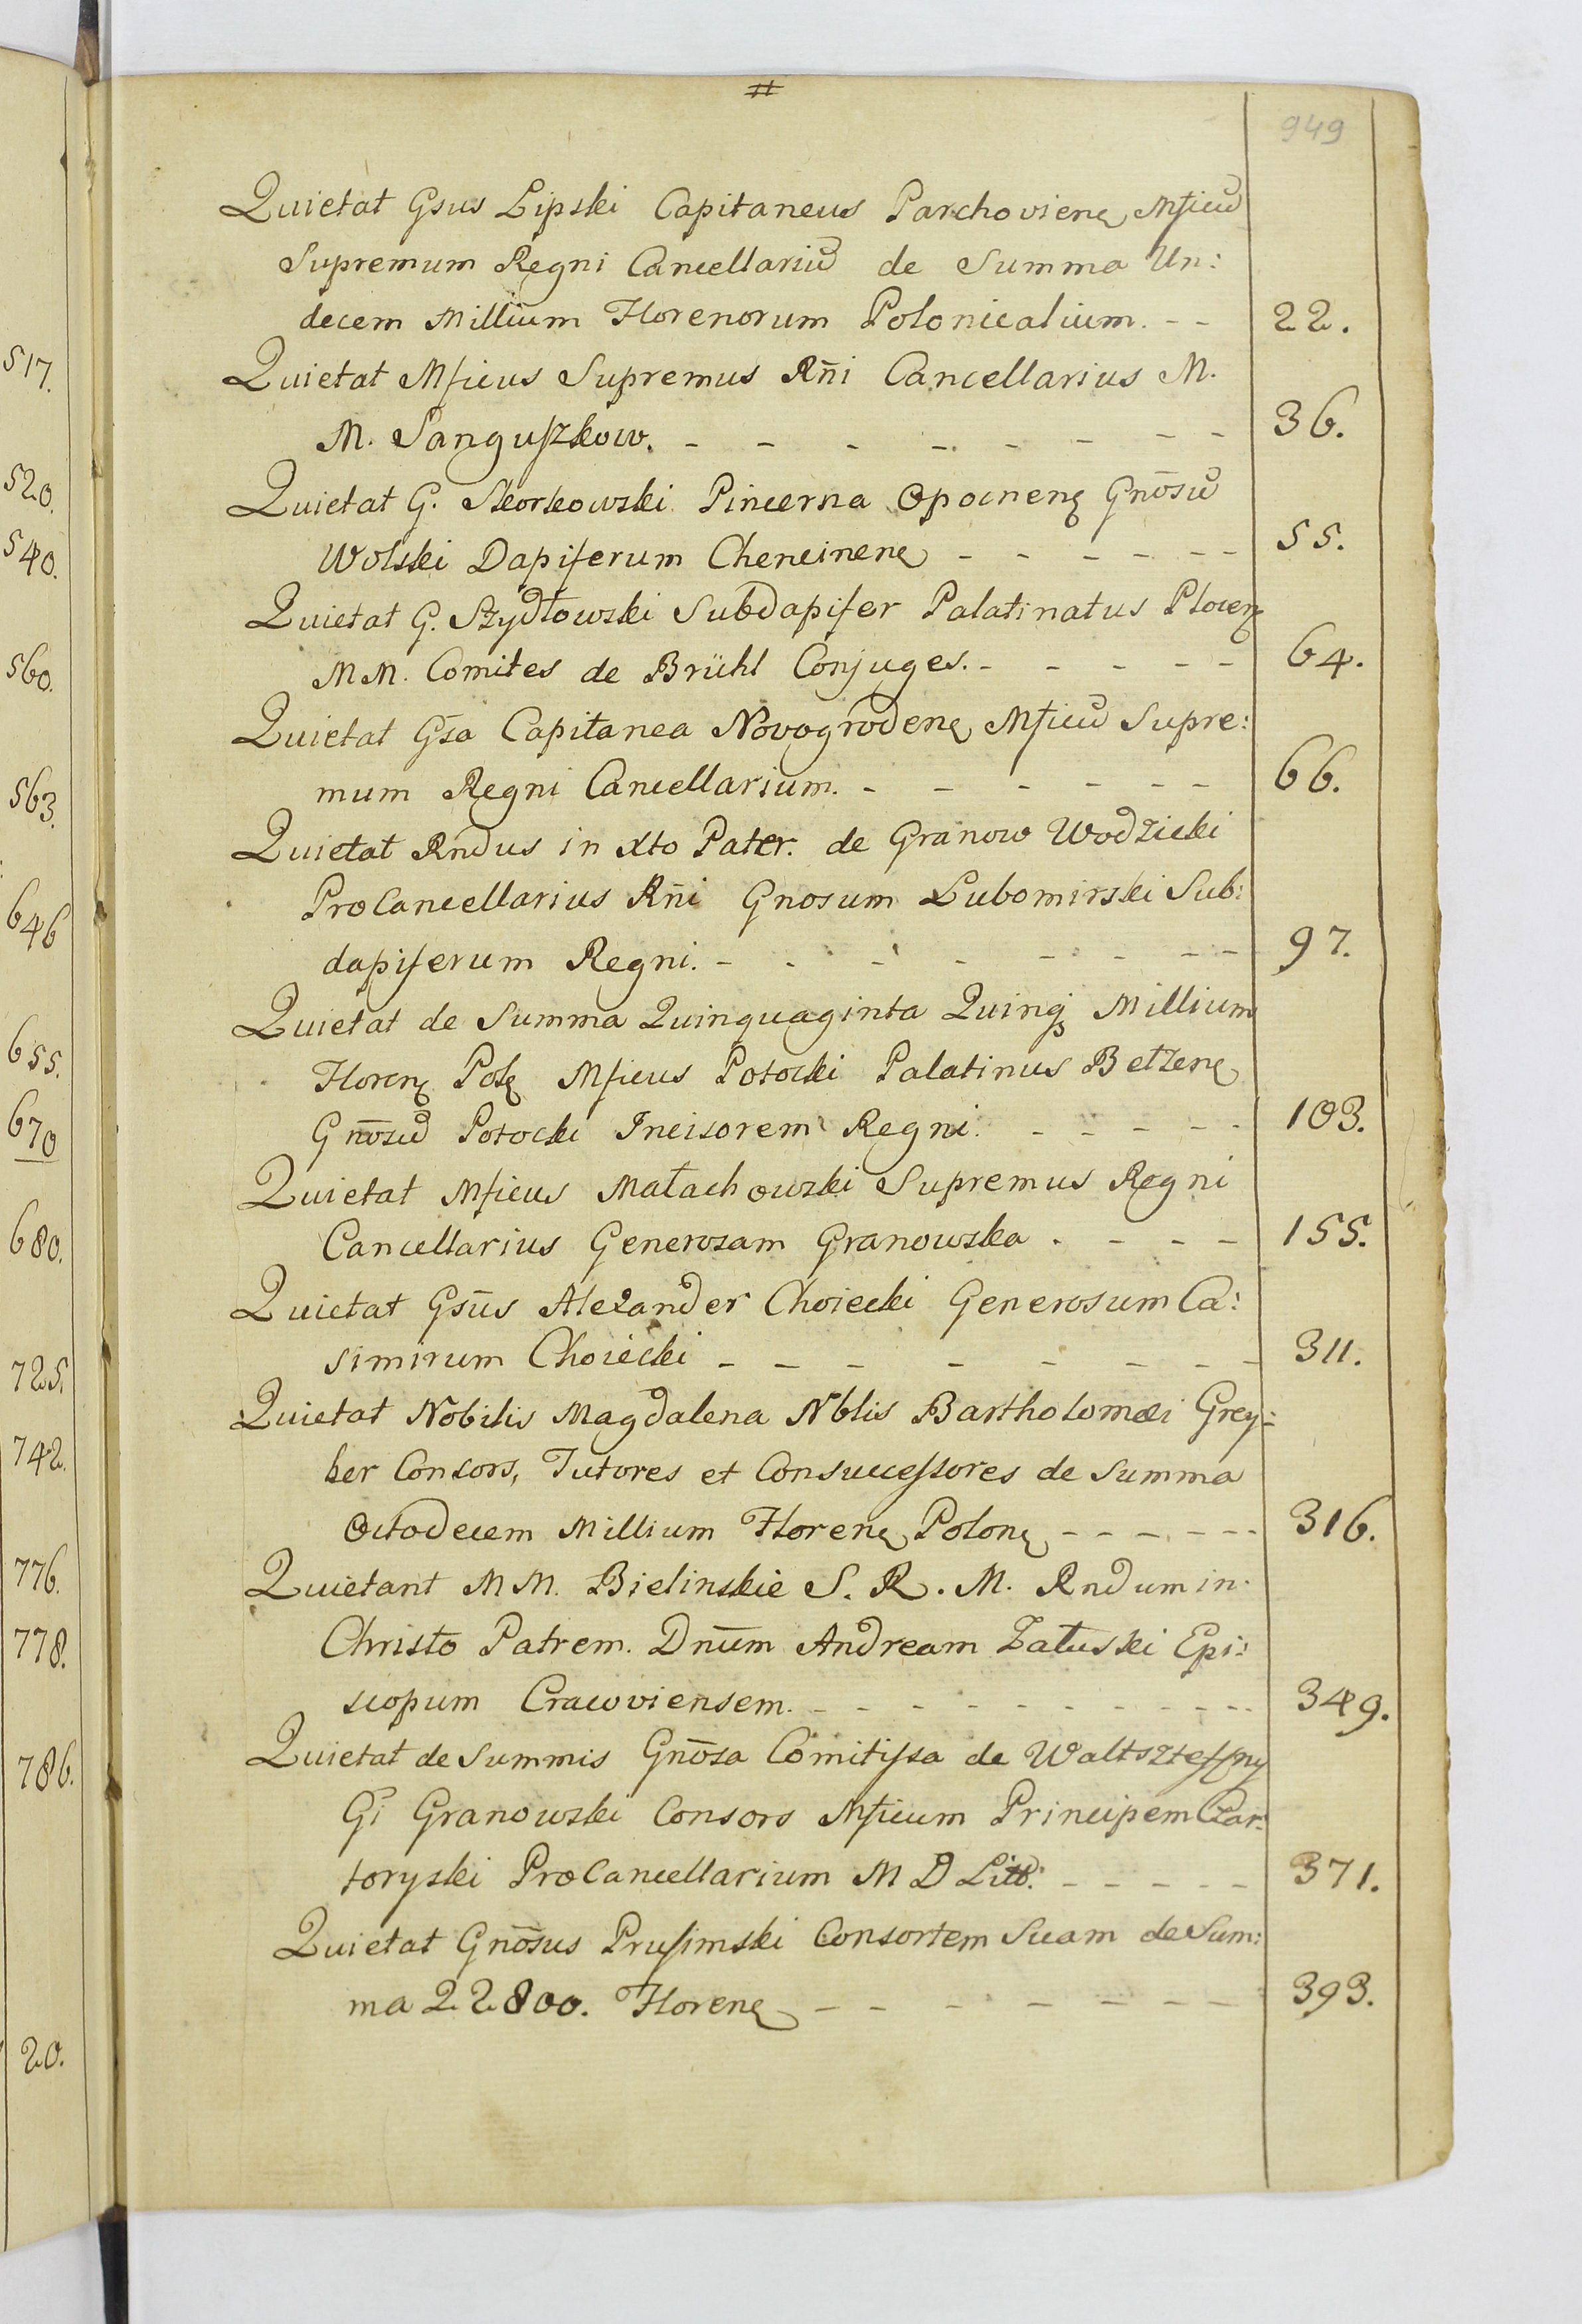 517.
520.
540.
560.
563.
646
655.
670
680.
725.
742.
776.
778.
786.
20.
#
949
Quietat Gsus Lipski Capitaneus Parchovienę Mficū
Supremum Regni Cancellariū de Summa Un:
decem Millium Florenorum Polonicalium. - - 22.
Quietat Mficus Supremus Rn̄i Cancellarius M.
M. Sanguszkow. - - - - - - - - 36.
Quietat G. Skorkowski Pincerna Opocnenę Gnōsū
Wolski Dapiferum Chencinenę - - - - - - 55.
Quietat G. Szydłowski Subdapifer Palatinatus Plocenę
MM. Comites de Brühl Conjuges. - - - - - - 64.
Quietat Gsa Capitanea Novogrodenę Mficū Supre:
mum Regni Cancellarium. - - - - - - 66.
Quietat Rndus in Xto Pater. de Granow Wodzicki
ProCancellarius Rn̄i Gnosum Lubomirski Sub:
dapiferum Regni. - - - - - - - - 97.
Quietat de Summa Quinquaginta Quinq3 Millium
Florenę Polę Mficus Potocki Palatinus Bełzenę
Gnōsū Potocki Incisorem Regni. - - - - - 103.
Quietat Mficus Małachowski Supremus Regni
Cancellarius Generosam Granowska . - - - 155.
Quietat Gsūs Alexander Choiecki Generosum Ca:
simirum Choiecki - - - - - - - - 311.
Quietat Nobilis Magdalena Nblis Bartholomæi Grey:
ber Consors, Tutores et Consuccessores de Summa
Octodecem Millium Florenę Polonę - - - - - - 316.
Quietant MM. Bielinskie S. R. M. Rndum in
Christo Patrem. Dnūm Andream Załuski Epi:
scopum Cracoviensem. - - - - - - - - - 349.
Quietat de Summis Gnōsa Comitissa de
Gi Granowski Consors Mficum Principem Czar:
toryski ProCancellarium M D Litt: - - - - - 371.
Quietat Gnōsus Prusimski Consortem Suam de Sum:
ma 22800. Florenę - - - - - - - 393.